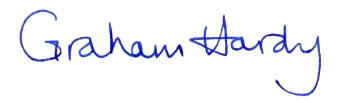 Graham Hardy